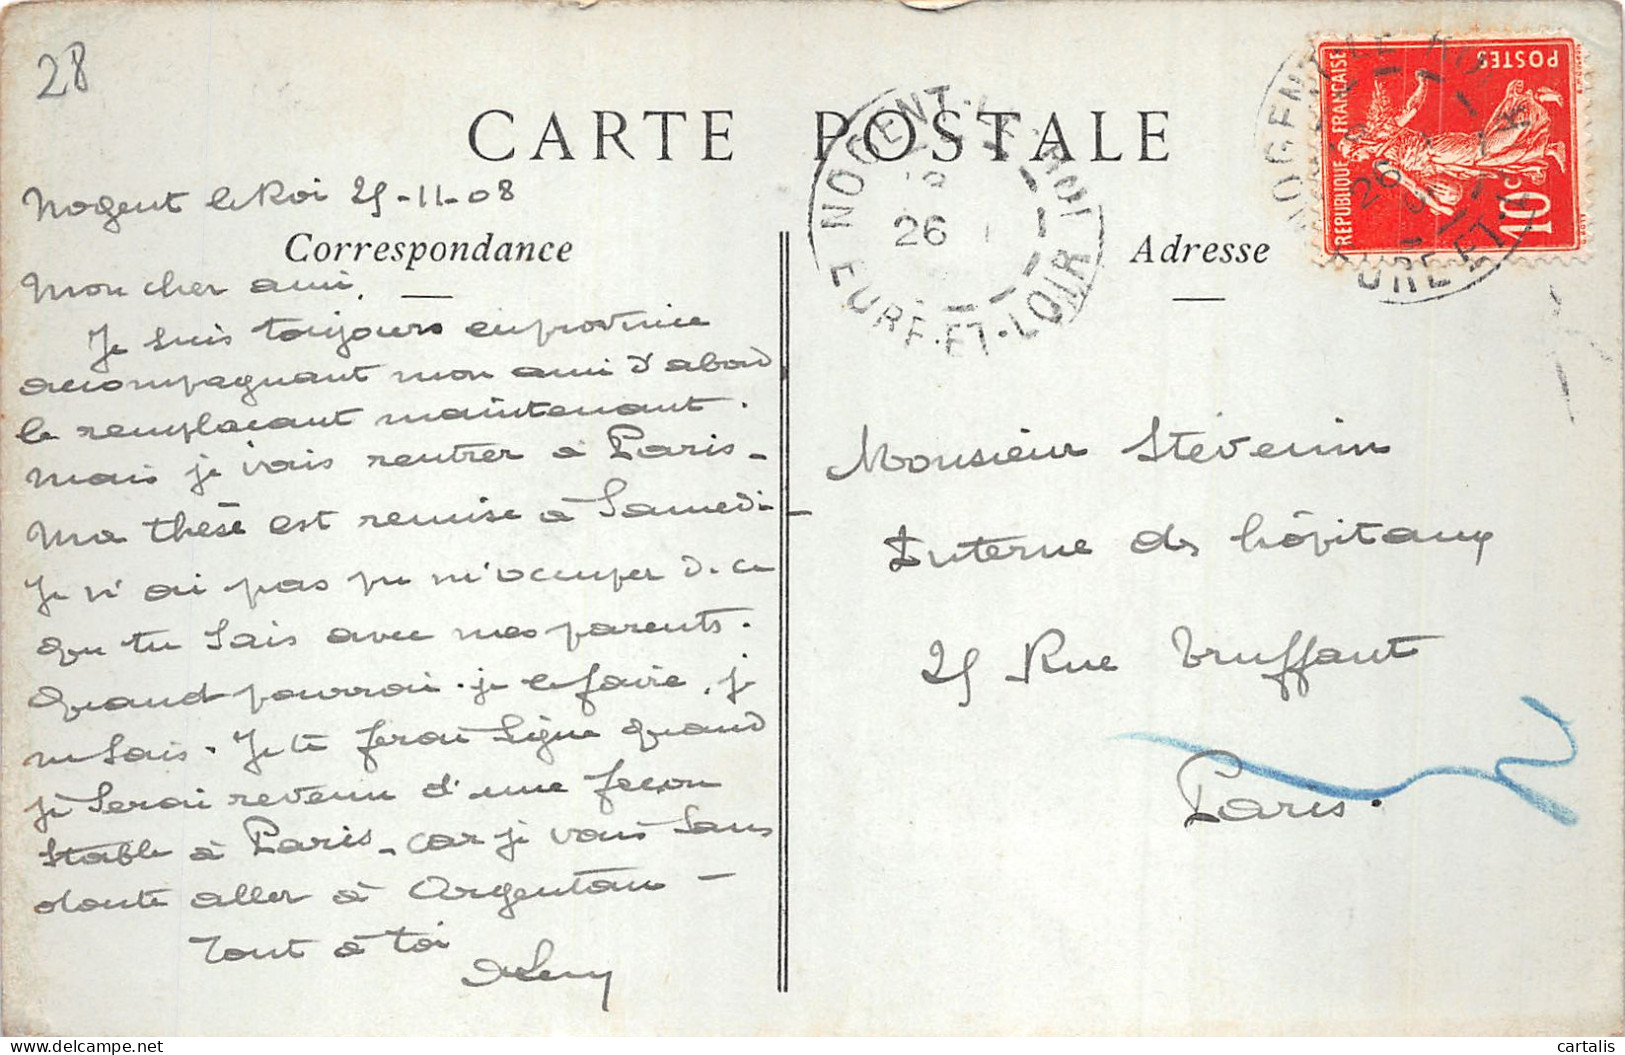 28
CARTE POSTALE
Nogent le Roi 25-11-08
Correspondance
Mon cher ami,
Je suis toujours en province
accompagnant mon ami d'abord
le remplaçant maintenant.
mais je vais rentrer à Paris -
Ma thèse est remise à Samedi -
Je n'ai pas pu m'occuper de ce
que tu sais avec mes parents.
Quand pourrai-je le faire, je
ne sais. Je te ferai signe quand
je serai revenu d'une façon
stable à Paris - car je vais sans
doute aller à Argentan -
Tout à toi
NOGENT-LE-ROI
26
EURE-ET-LOIR
Adresse
NOGENT-LE-ROI
26
EURE-ET-LOIR
REPUBLIQUE FRANÇAISE
POSTES
10c
Monsieur Stévenin
Interne des hôpitaux
25 Rue Truffaut
Paris.
cartalis